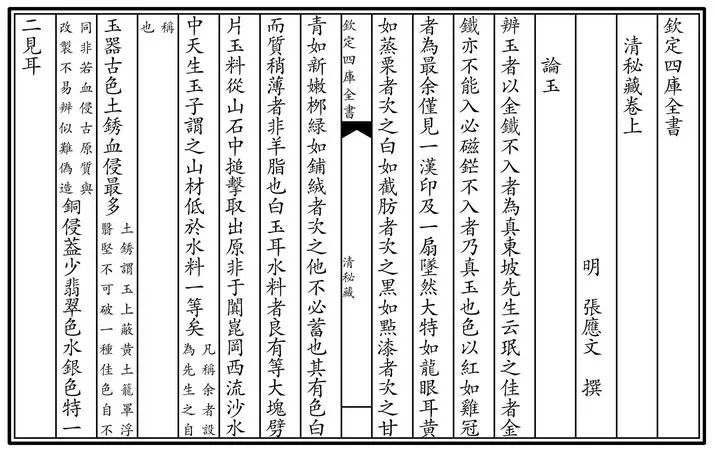 欽定四庫全書
清秘藏卷上
明 張應文 撰
論玉
辨玉者以金鐵不入者為真東坡先生云珉之佳者金
鐵亦不能入必磁鋩不入者乃真玉也色以紅如雞冠
者為最余僅見一漢印及一扇墜然大特如龍眼耳黃
如蒸粟者次之白如截肪者次之黑如點漆者次之甘
欽定四庫全書 清秘藏
青如新嫩桞綠如鋪絨者次之他不必蓄也其有色白
而質稍薄者非羊脂也白玉耳水料者良有等大塊劈
片玉料從山石中搥擊取出原非于闐崑岡西流沙水
中天生玉子謂之山材低於水料一等矣
凡稱余者設
為先生之自
稱
也
玉器古色土銹血侵最多
土銹謂玉上蔽黃土籠罩浮
翳堅不可破一種佳色自不
同非若血侵古原質與
改製不易辨似難偽造
銅侵葢少翡翠色水銀色特一
二見耳